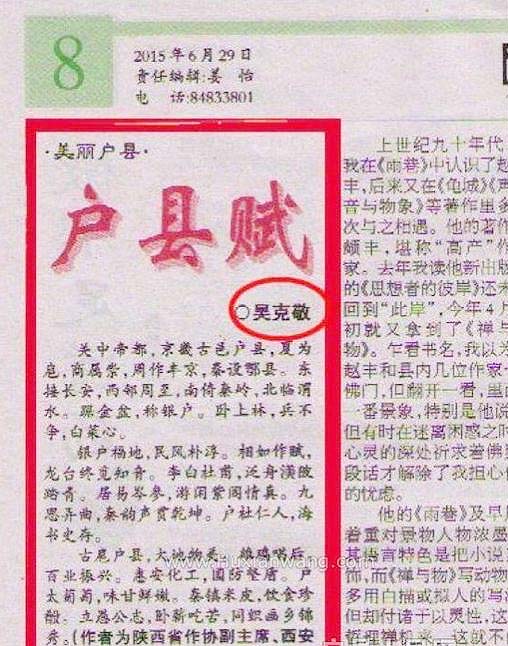 8
2015年6月29日
责任编辑:姜 怡
电 话:84833801
·美丽户县·
户县赋
○吴克敬
关中帝都,京畿古邑户县,夏为
扈,商属崇,周作丰京,秦设鄠县。东
接长安,西邻周至,南倚秦岭,北临渭
水。踩金盆,称银户。卧上林,兵不
争,白菜心。
银户福地,民风朴淳。相如作赋,
龙台终觅知音。李白杜甫,泛舟渼陂
踏青。居易岑参,游闲紫阁情真。九
思弄曲,秦韵声贯乾坤。户社仁人,海
书史存。
古扈户县,大地物美。雄鸡唱后,
百业振兴。惠安化工,国防坚盾。户
太葡萄,味甘鲜嫩。秦镇米皮,饮食珍
馓。立愚公志,卧薪吃苦,同织画乡锦
秀。(作者为陕西省作协副主席、西安
上世纪九十年代,
我在《雨巷》中认识了赵
丰,后来又在《龟城》《声
音与物象》等著作里多
次与之相遇。他的著作
颇丰,堪称“高产”作
家。去年我读他新出版
的《思想者的彼岸》还未
回到“此岸”,今年4月
初就又拿到了《禅与
物》。乍看书名,我以为
赵丰和县内几位作家一
佛门,但翻开一看,里面
一番景象,特别是他说
但有时在迷离困惑之时
心灵的深处祈求着佛
段话才解除了我担心他
的忧虑。
他的《雨巷》及早期
着重对景物人物浓墨
其语言特色是把小说
饰,而《禅与物》写动物
多用白描或拟人的写法
但却付诸于以灵性,这
哲理禅机来。这就不
www.huxianwang.com